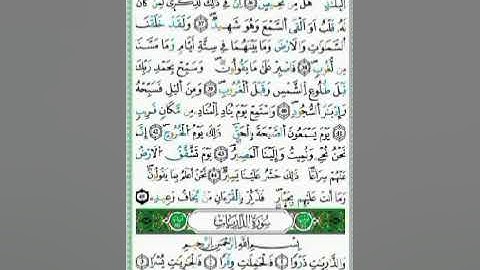 هَلْ مِن مَّحِيصٍ ﴿٣٦﴾ إِنَّ فِي ذَٰلِكَ لَذِكْرَىٰ لِمَن كَانَ
لَهُ قَلْبٌ أَوْ أَلْقَى السَّمْعَ وَهُوَ شَهِيدٌ ﴿٣٧﴾ وَلَقَدْ خَلَقْنَا
السَّمَٰوَٰتِ وَالْأَرْضَ وَمَا بَيْنَهُمَا فِي سِتَّةِ أَيَّامٍ وَمَا مَسَّنَا
مِن لُّغُوبٍ ﴿٣٨﴾ فَاصْبِرْ عَلَىٰ مَا يَقُولُونَ وَسَبِّحْ بِحَمْدِ رَبِّكَ
قَبْلَ طُلُوعِ الشَّمْسِ وَقَبْلَ الْغُرُوبِ ﴿٣٩﴾ وَمِنَ الَّيْلِ فَسَبِّحْهُ
وَأَدْبَٰرَ السُّجُودِ ﴿٤٠﴾ وَاسْتَمِعْ يَوْمَ يُنَادِ الْمُنَادِ مِن مَّكَانٍ قَرِيبٍ
﴿٤١﴾ يَوْمَ يَسْمَعُونَ الصَّيْحَةَ بِالْحَقِّ ذَٰلِكَ يَوْمُ الْخُرُوجِ ﴿٤٢﴾ إِنَّا
نَحْنُ نُحْيِي وَنُمِيتُ وَإِلَيْنَا الْمَصِيرُ ﴿٤٣﴾ يَوْمَ تَشَقَّقُ الْأَرْضُ
عَنْهُمْ سِرَاعًا ذَٰلِكَ حَشْرٌ عَلَيْنَا يَسِيرٌ ﴿٤٤﴾ نَحْنُ أَعْلَمُ بِمَا يَقُولُونَ
وَمَا أَنتَ عَلَيْهِم بِجَبَّارٍ فَذَكِّرْ بِالْقُرْءَانِ مَن يَخَافُ وَعِيدِ ﴿٤٥﴾
سُورَةُ الذَّارِيَاتِ
بِسْمِ اللَّهِ الرَّحْمَٰنِ الرَّحِيمِ
وَالذَّٰرِيَٰتِ ذَرْوًا ﴿١﴾ فَالْحَٰمِلَٰتِ وِقْرًا ﴿٢﴾ فَالْجَٰرِيَٰتِ يُسْرًا ﴿٣﴾